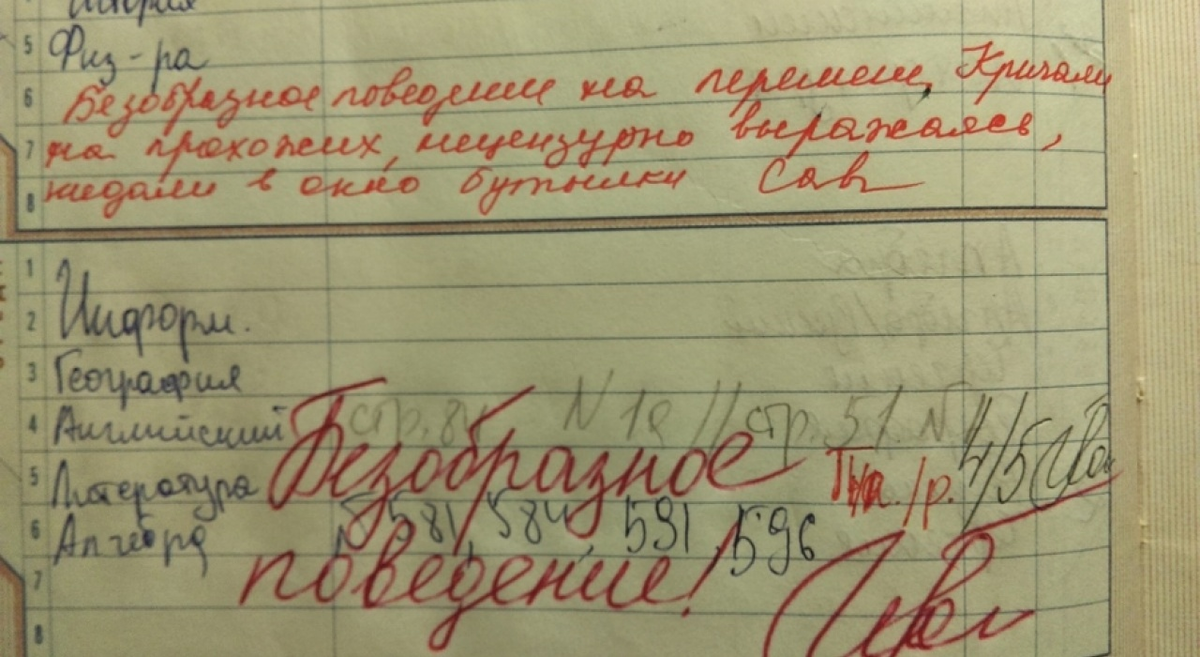 История
5 Физ-ра
6 Безобразное поведение на перемене. Кричали
7 на прохожих, нецензурно выражаясь,
8 кидали в окно бутылки Сав
1
2 Информ.
3 География
4 Английский стр. 84 N 1a // стр. 51 N 4/5
5 Литература Безобразное
6 Алгебра 581, 584, 591, 596
7 поведение!
8